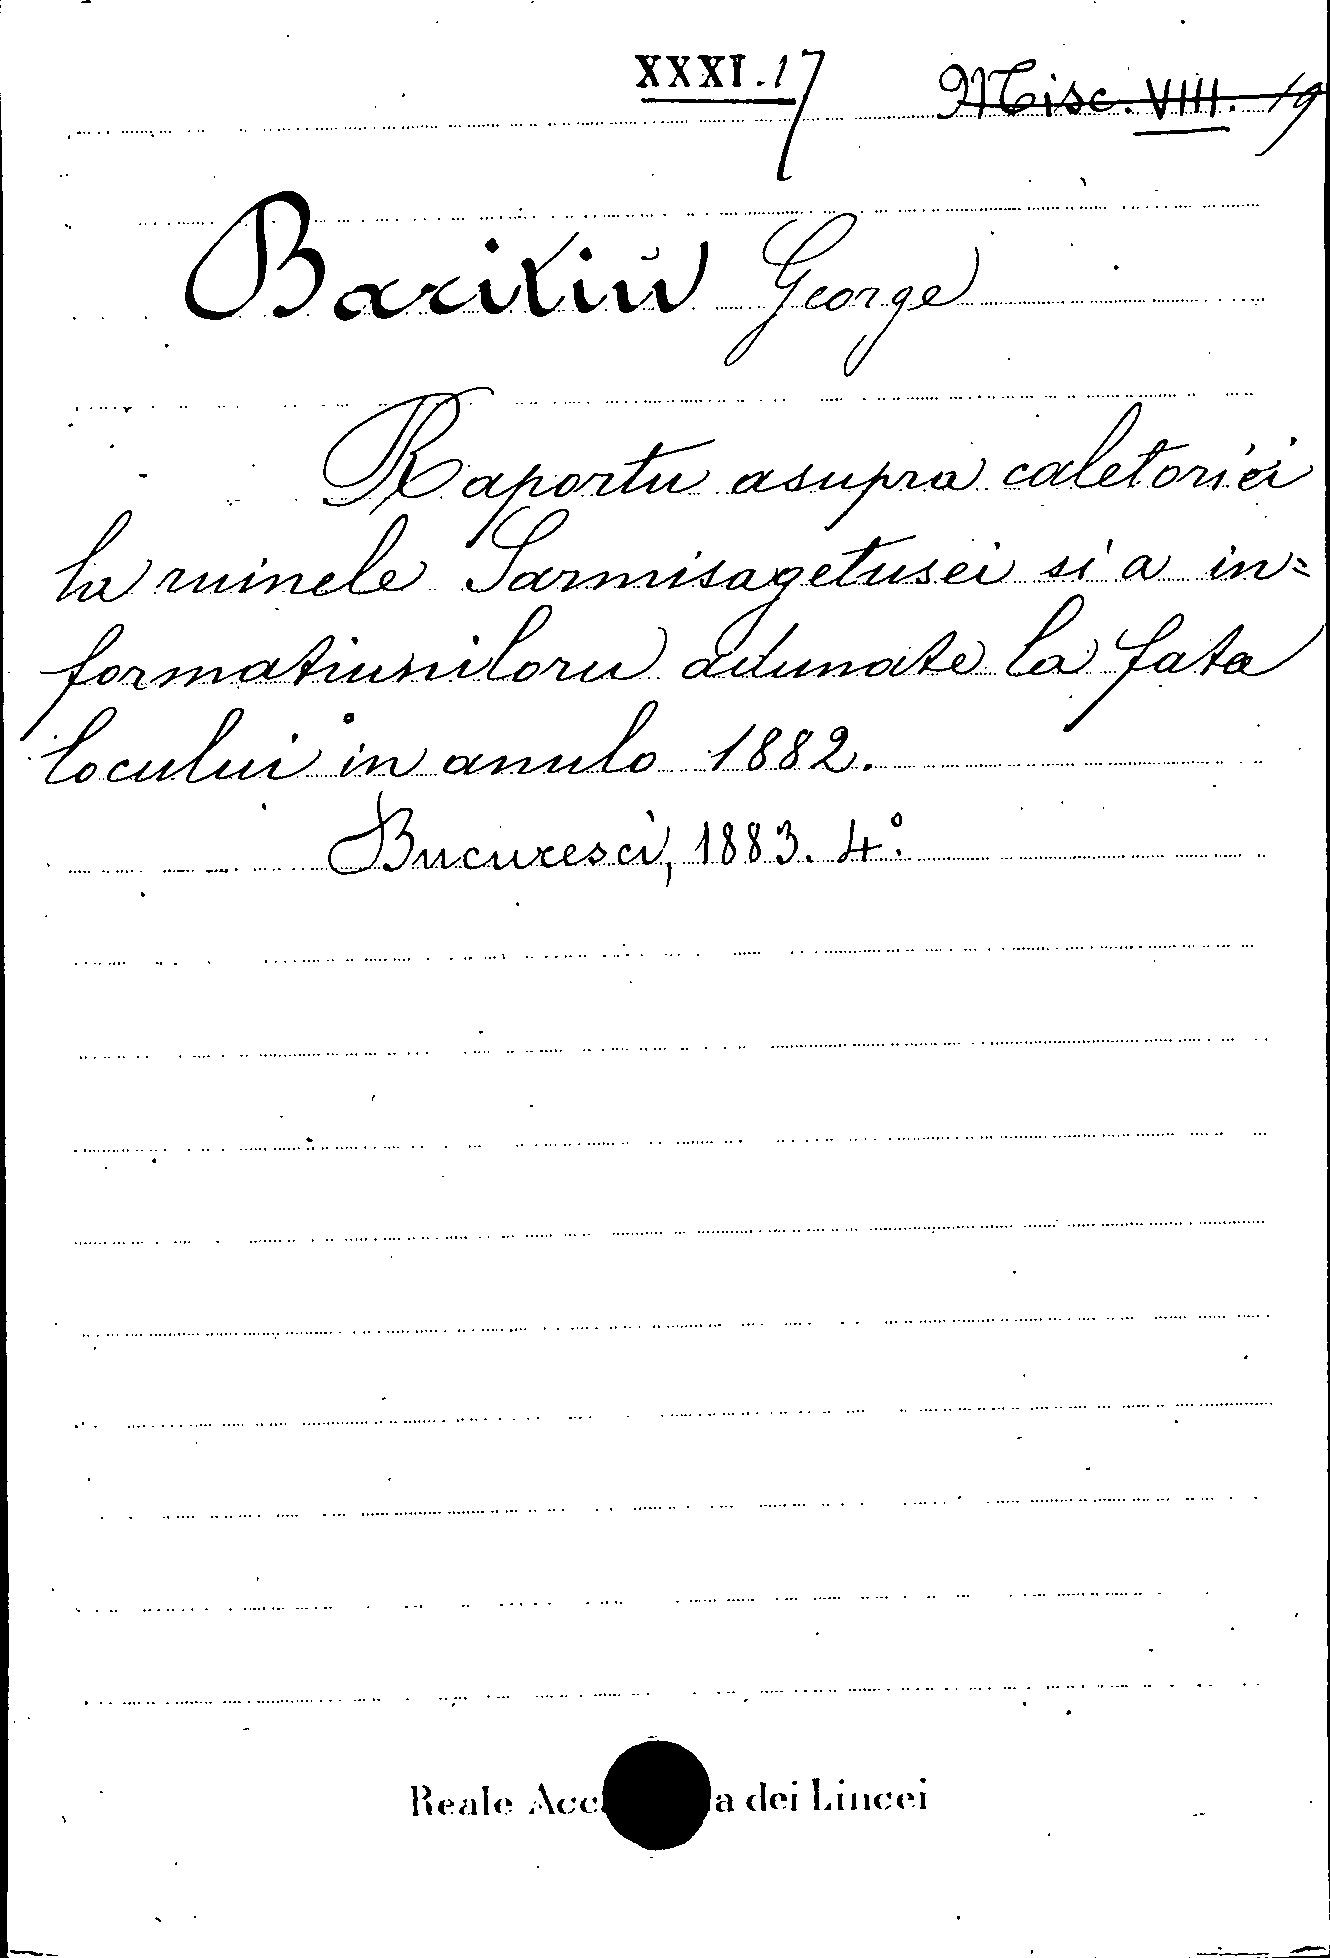 XXXI.17 Misc. VIII. 19
Baritiu George
Raportu asupra caletoriei
la ruinele Sarmisagetusei si a in=
formatiuniloru adunate la fata
locului in anulo 1882.
Bucuresci, 1883. 4.°
Reale Acc a dei Lincei